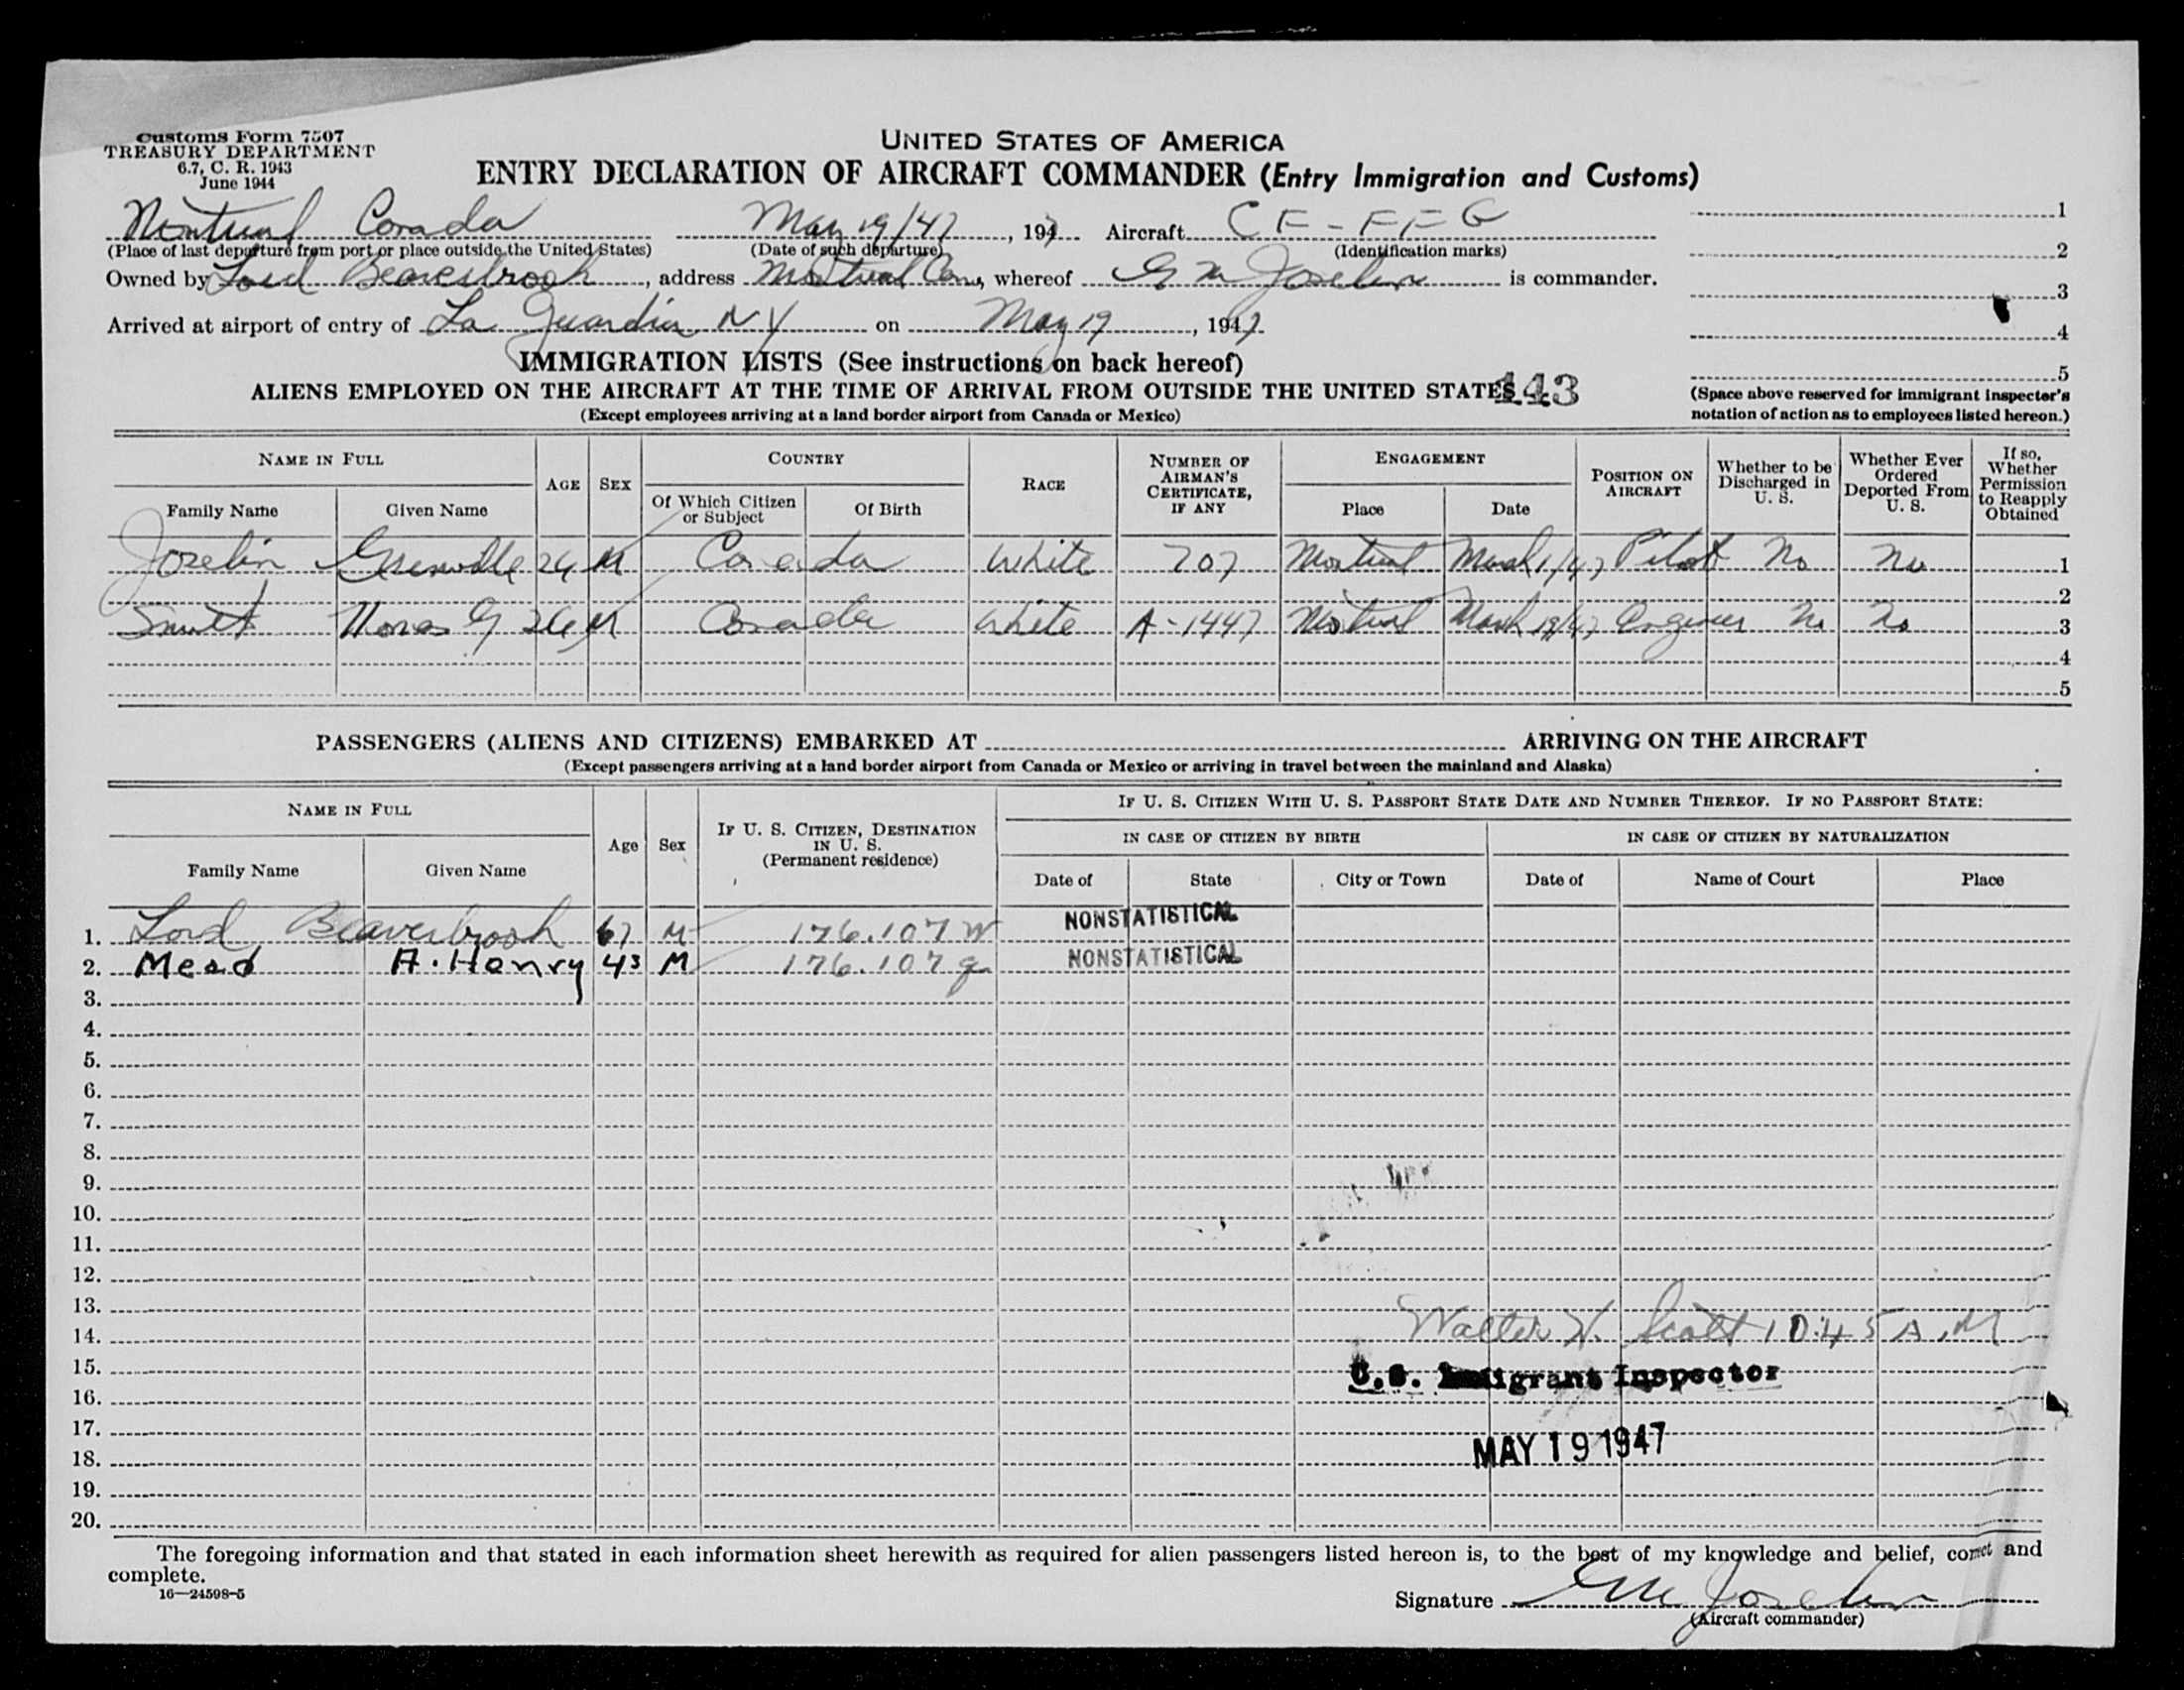 Customs Form 7507
TREASURY DEPARTMENT
6.7, C. R. 1943
June 1944
UNITED STATES OF AMERICA
ENTRY DECLARATION OF AIRCRAFT COMMANDER (Entry Immigration and Customs)
Montreal Canada May 19/47, 1947 Aircraft CF-FFG
(Place of last departure from port or place outside the United States) (Date of such departure) (Identification marks)
Owned by Lord Beaverbrook, address Montreal Can, whereof G M Joselin is commander.
Arrived at airport of entry of La Guardia N Y on May 19, 1947
1
2
3
4
5
(Space above reserved for immigrant inspector's
notation of action as to employees listed hereon.)
IMMIGRATION LISTS (See instructions on back hereof)
ALIENS EMPLOYED ON THE AIRCRAFT AT THE TIME OF ARRIVAL FROM OUTSIDE THE UNITED STATES 443
(Except employees arriving at a land border airport from Canada or Mexico)
NAME IN FULL
Family Name Given Name
AGE SEX
COUNTRY
Of Which Citizen or Subject Of Birth
RACE
NUMBER OF AIRMAN'S CERTIFICATE, IF ANY
ENGAGEMENT
Place Date
POSITION ON AIRCRAFT
Whether to be Discharged in U. S.
Whether Ever Ordered Deported From U. S.
If so, Whether Permission to Reapply Obtained
Joselin Grenville 26 M Canada White 707 Montreal March 1/47 Pilot No No 1
2
Thomas G 26 M Canada White A-1447 Montreal March 19/47 Engineer No No 3
4
5
PASSENGERS (ALIENS AND CITIZENS) EMBARKED AT ARRIVING ON THE AIRCRAFT
(Except passengers arriving at a land border airport from Canada or Mexico or arriving in travel between the mainland and Alaska)
NAME IN FULL
Family Name Given Name
Age Sex
IF U. S. CITIZEN, DESTINATION IN U. S.
(Permanent residence)
IF U. S. CITIZEN WITH U. S. PASSPORT STATE DATE AND NUMBER THEREOF. IF NO PASSPORT STATE:
IN CASE OF CITIZEN BY BIRTH IN CASE OF CITIZEN BY NATURALIZATION
Date of State City or Town Date of Name of Court Place
1. Lord Beaverbrook 67 M 176.107 W NONSTATISTICAL
2. Mead A. Henry 43 M 176.107 g NONSTATISTICAL
3.
4.
5.
6.
7.
8.
9.
10.
11.
12.
13.
14. Walter W. Scott 10:45 A.M
15. U.S. Immigrant Inspector
16.
17.
18. MAY 19 1947
19.
20.
The foregoing information and that stated in each information sheet herewith as required for alien passengers listed hereon is, to the best of my knowledge and belief, correct and
complete.
16—24598-5
Signature G M Joselin
(Aircraft commander)